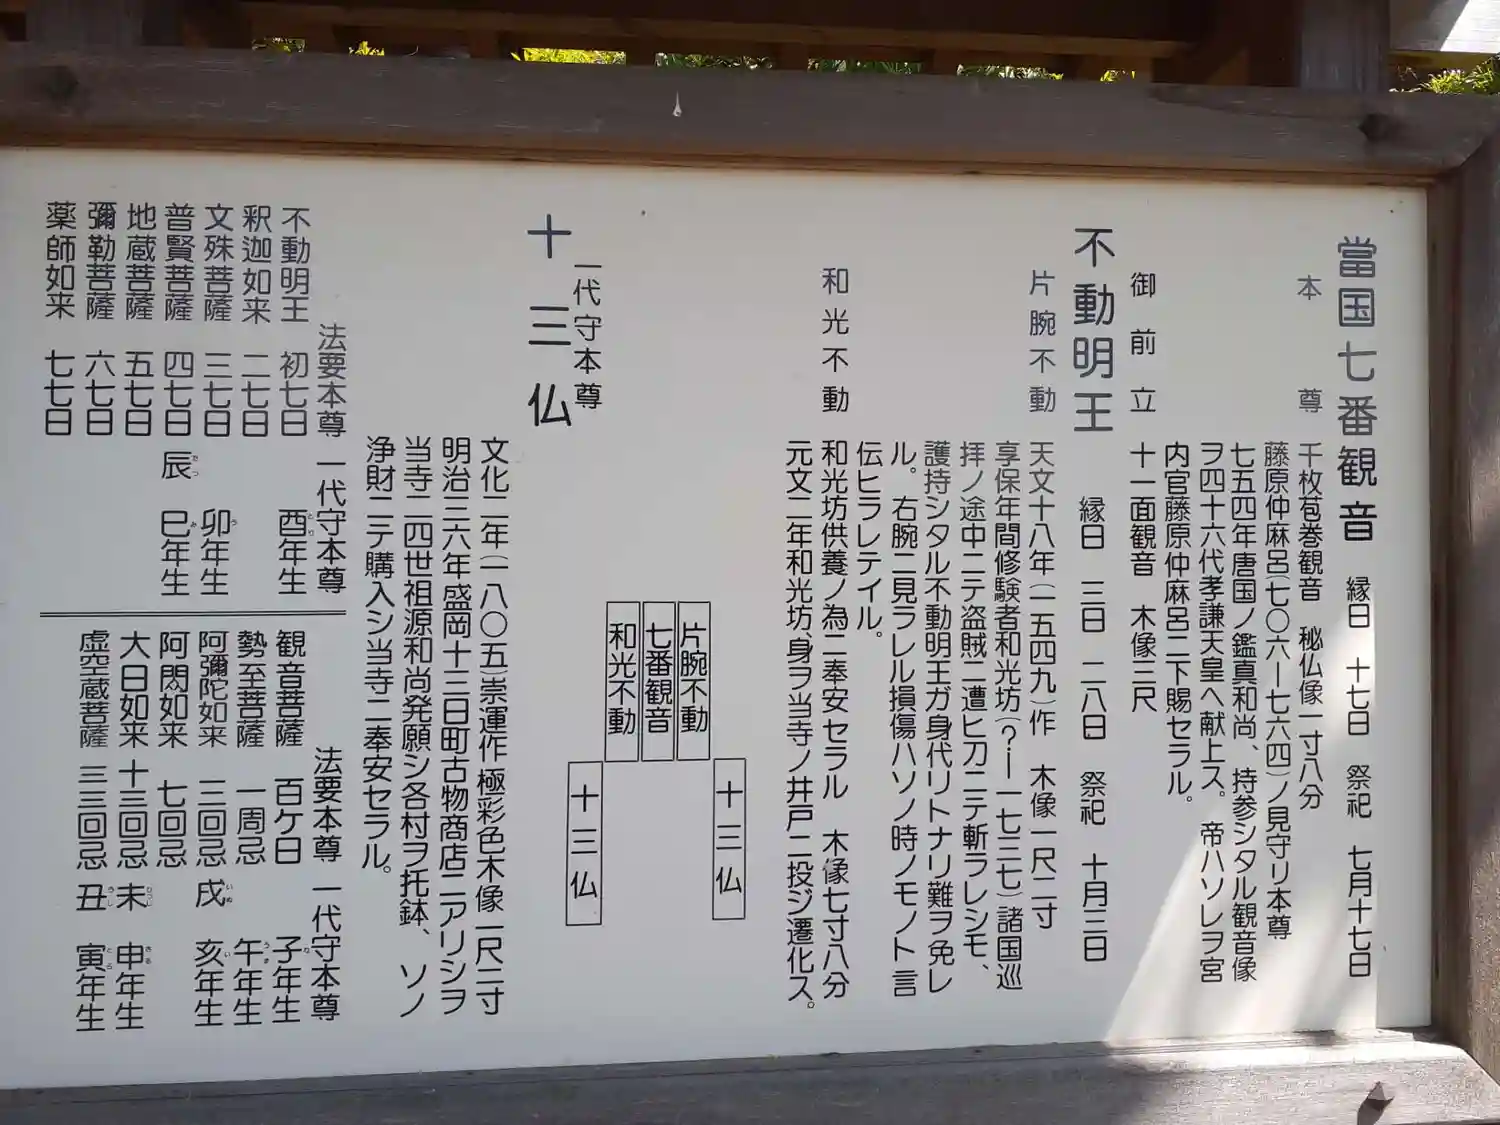 當国七番観音 縁日 十七日 祭祀 七月十七日
本尊 千枚苞巻観音 秘仏像一寸八分
藤原仲麻呂(七〇六ー七六四)ノ見守リ本尊
七五四年唐国ノ鑑真和尚、持参シタル観音像
ヲ四十六代孝謙天皇ヘ献上ス。帝ハソレヲ宮
内官藤原仲麻呂ニ下賜セラル。
御前立 十一面観音 木像三尺
不動明王 縁日 三日 二八日 祭祀 十月三日
片腕不動 天文十八年(一五四九)作 木像一尺二寸
享保年間修験者和光坊(?ー一七三七)諸国巡
拝ノ途中ニテ盗賊ニ遭ヒ刀ニテ斬ラレシモ、
護持シタル不動明王ガ身代リトナリ難ヲ免レ
ル。右腕ニ見ラレル損傷ハソノ時ノモノト言
伝ヒラレテイル。
和光不動 和光坊供養ノ為ニ奉安セラル 木像七寸八分
元文二年和光坊、身ヲ当寺ノ井戸ニ投ジ遷化ス。
十三仏
片腕不動
七番観音
和光不動
十三仏
一代守本尊
十三仏
文化二年(一八〇五)崇運作 極彩色木像一尺三寸
明治三六年盛岡十三日町古物商店ニアリシヲ
当寺二四世祖源和尚発願シ各村ヲ托鉢、ソノ
浄財ニテ購入シ当寺ニ奉安セラル。
法要本尊 一代守本尊
不動明王 初七日 酉年生
とり
釈迦如来 二七日
文殊菩薩 三七日 卯年生
う
普賢菩薩 四七日 辰 巳年生
たつ み
地蔵菩薩 五七日
彌勒菩薩 六七日
薬師如来 七七日
法要本尊 一代守本尊
観音菩薩 百ケ日 子年生
ね
勢至菩薩 一周忌 午年生
うま
阿彌陀如来 三回忌 戌 亥年生
いぬ い
阿閦如来 七回忌
大日如来 十三回忌 未 申年生
ひつじ さる
虚空蔵菩薩 三三回忌 丑 寅年生
うし とら